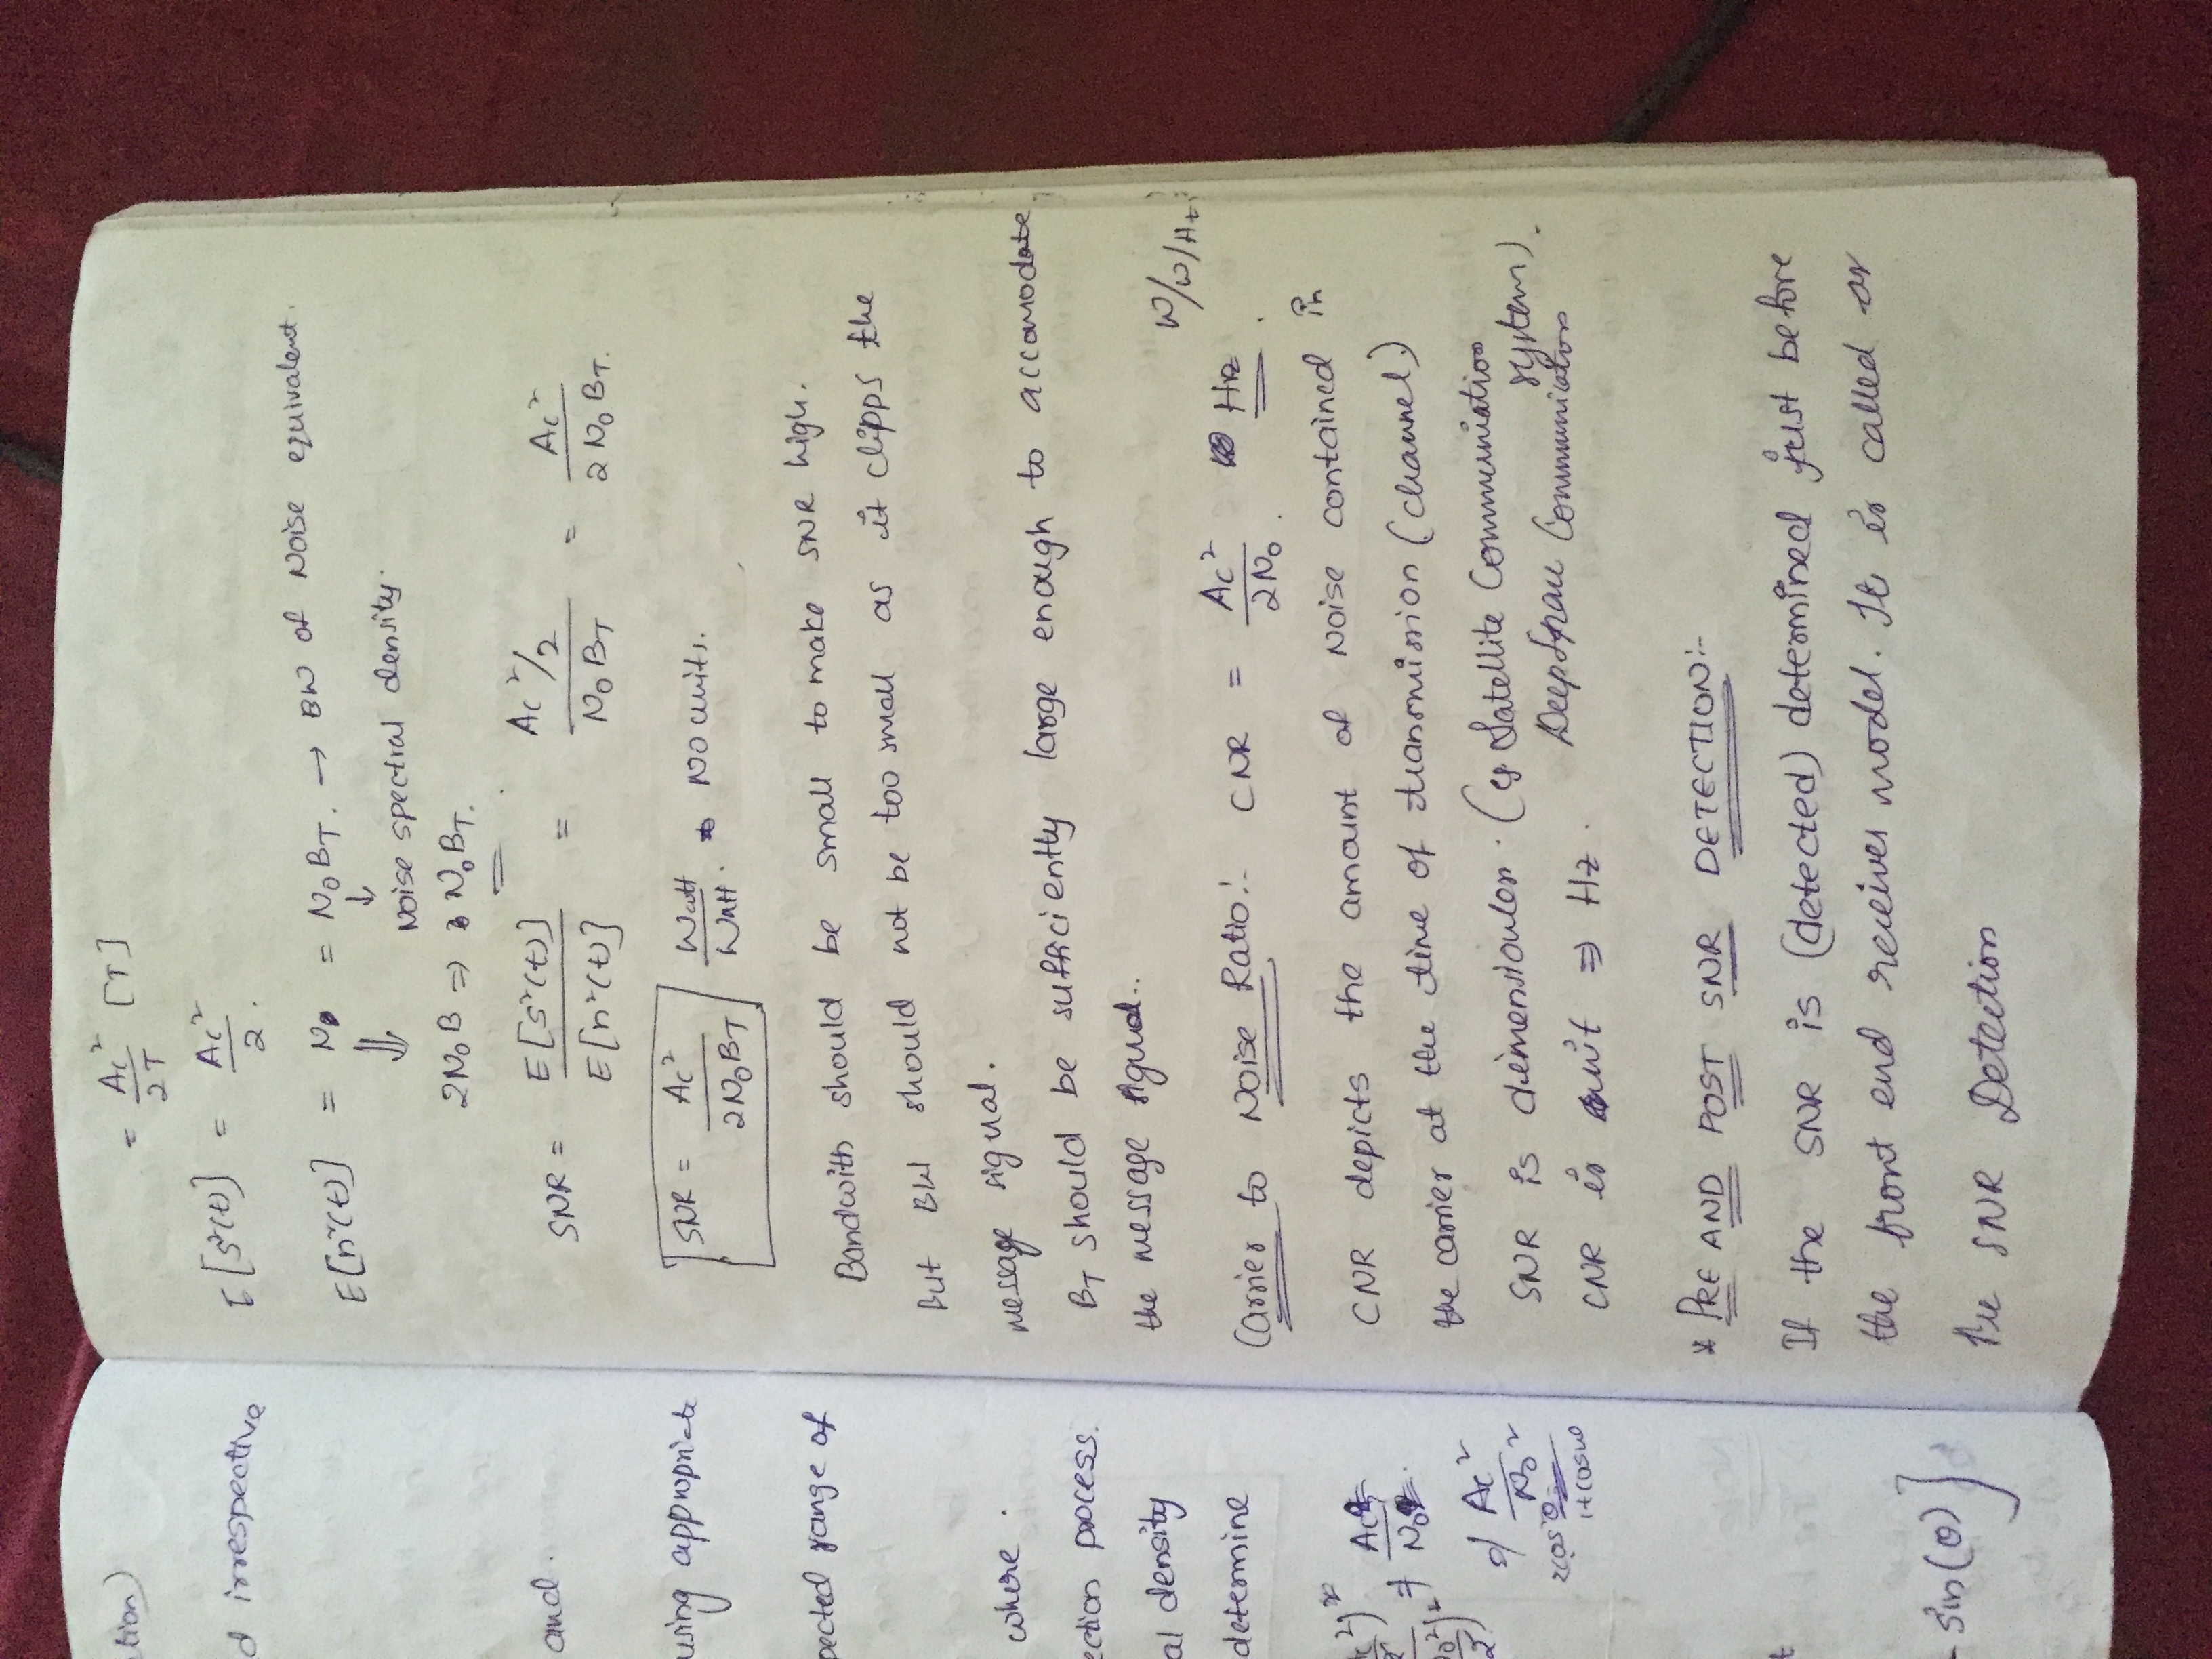 tion)
d irrespective
and.
using appropriate
pected range of
where.
ection process.
al density
determine
Ac
No
or Ac²
No²
2cos²θ =
1+cos
- sin(θ)]
= Ac²/2T [T]
E[s²(t)] = Ac²/2.
E[n²(t)] = N = N₀BT. → BW of Noise equivalent.
⇓ ↓
Noise spectral density.
2N₀B ⇒ N₀BT.
SNR = E[s²(t)]/E[n²(t)] = (Ac²/2)/(N₀BT) = Ac²/(2N₀BT).
SNR = Ac²/(2N₀BT) Watt/Watt. No units.
Bandwith should be small to make SNR high.
But BW should not be too small as it clipps the
message signal.
BT should be sufficiently large enough to accomodate
the message signal..
W/W/Hz
Carrier to Noise Ratio:- CNR = Ac²/2N₀. Hz.
CNR depicts the amount of Noise contained in
the carrier at the time of transmission (channel)
SNR is dimensionless. (eg Satellite Communiation
system).
DeepSpace Communication
CNR is unit ⇒ Hz.
* PRE AND POST SNR DETECTION:-
If the SNR is (detected) determined just before
the front end receiver model. It is called as
Pre SNR Detection